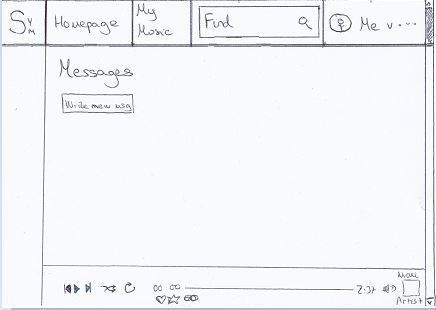 SYM
Homepage
My
Music
Find
Me
Messages
Write new msg
00 00
2:37
Artist